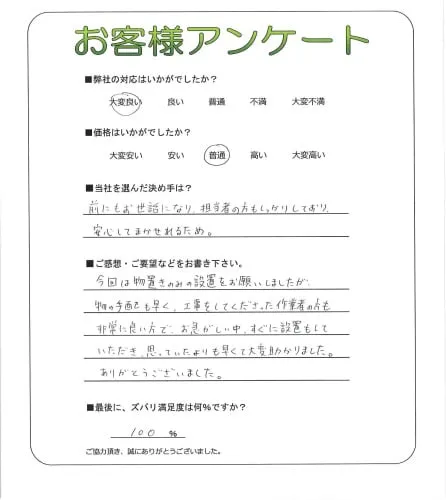 お客様アンケート
■弊社の対応はいかがでしたか?
大変良い 良い 普通 不満 大変不満
■価格はいかがでしたか?
大変安い 安い 普通 高い 大変高い
■当社を選んだ決め手は?
前にもお世話になり、担当者の方もしっかりしており、
安心してまかせれるため。
■ご感想・ご要望などをお書き下さい。
今回は物置きのみの設置をお願いしましたが、
物の手配も早く、工事をしてくださった作業者の方も
非常に良い方で、お急がしい中、すぐに設置もして
いただき、思っていたよりも早くて大変助かりました。
ありがとうございました。
■最後に、ズバリ満足度は何%ですか?
100 %
ご協力頂き、誠にありがとうございました。